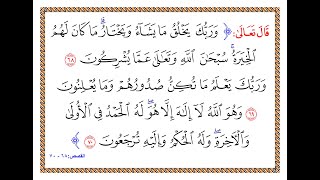 قَالَ تَعَالَىٰ: ﴿ وَرَبُّكَ يَخْلُقُ مَا يَشَآءُ وَيَخْتَارُ ۗ مَا كَانَ لَهُمُ
ٱلْخِيَرَةُ ۚ سُبْحَٰنَ ٱللَّهِ وَتَعَٰلَىٰ عَمَّا يُشْرِكُونَ ٦٨
وَرَبُّكَ يَعْلَمُ مَا تُكِنُّ صُدُورُهُمْ وَمَا يُعْلِنُونَ
٦٩ وَهُوَ ٱللَّهُ لَآ إِلَٰهَ إِلَّا هُوَ ۖ لَهُ ٱلْحَمْدُ فِى ٱلْأُولَىٰ
وَٱلْءَاخِرَةِ ۖ وَلَهُ ٱلْحُكْمُ وَإِلَيْهِ تُرْجَعُونَ ٧٠ ﴾
القصص: ٦٨ - ٧٠